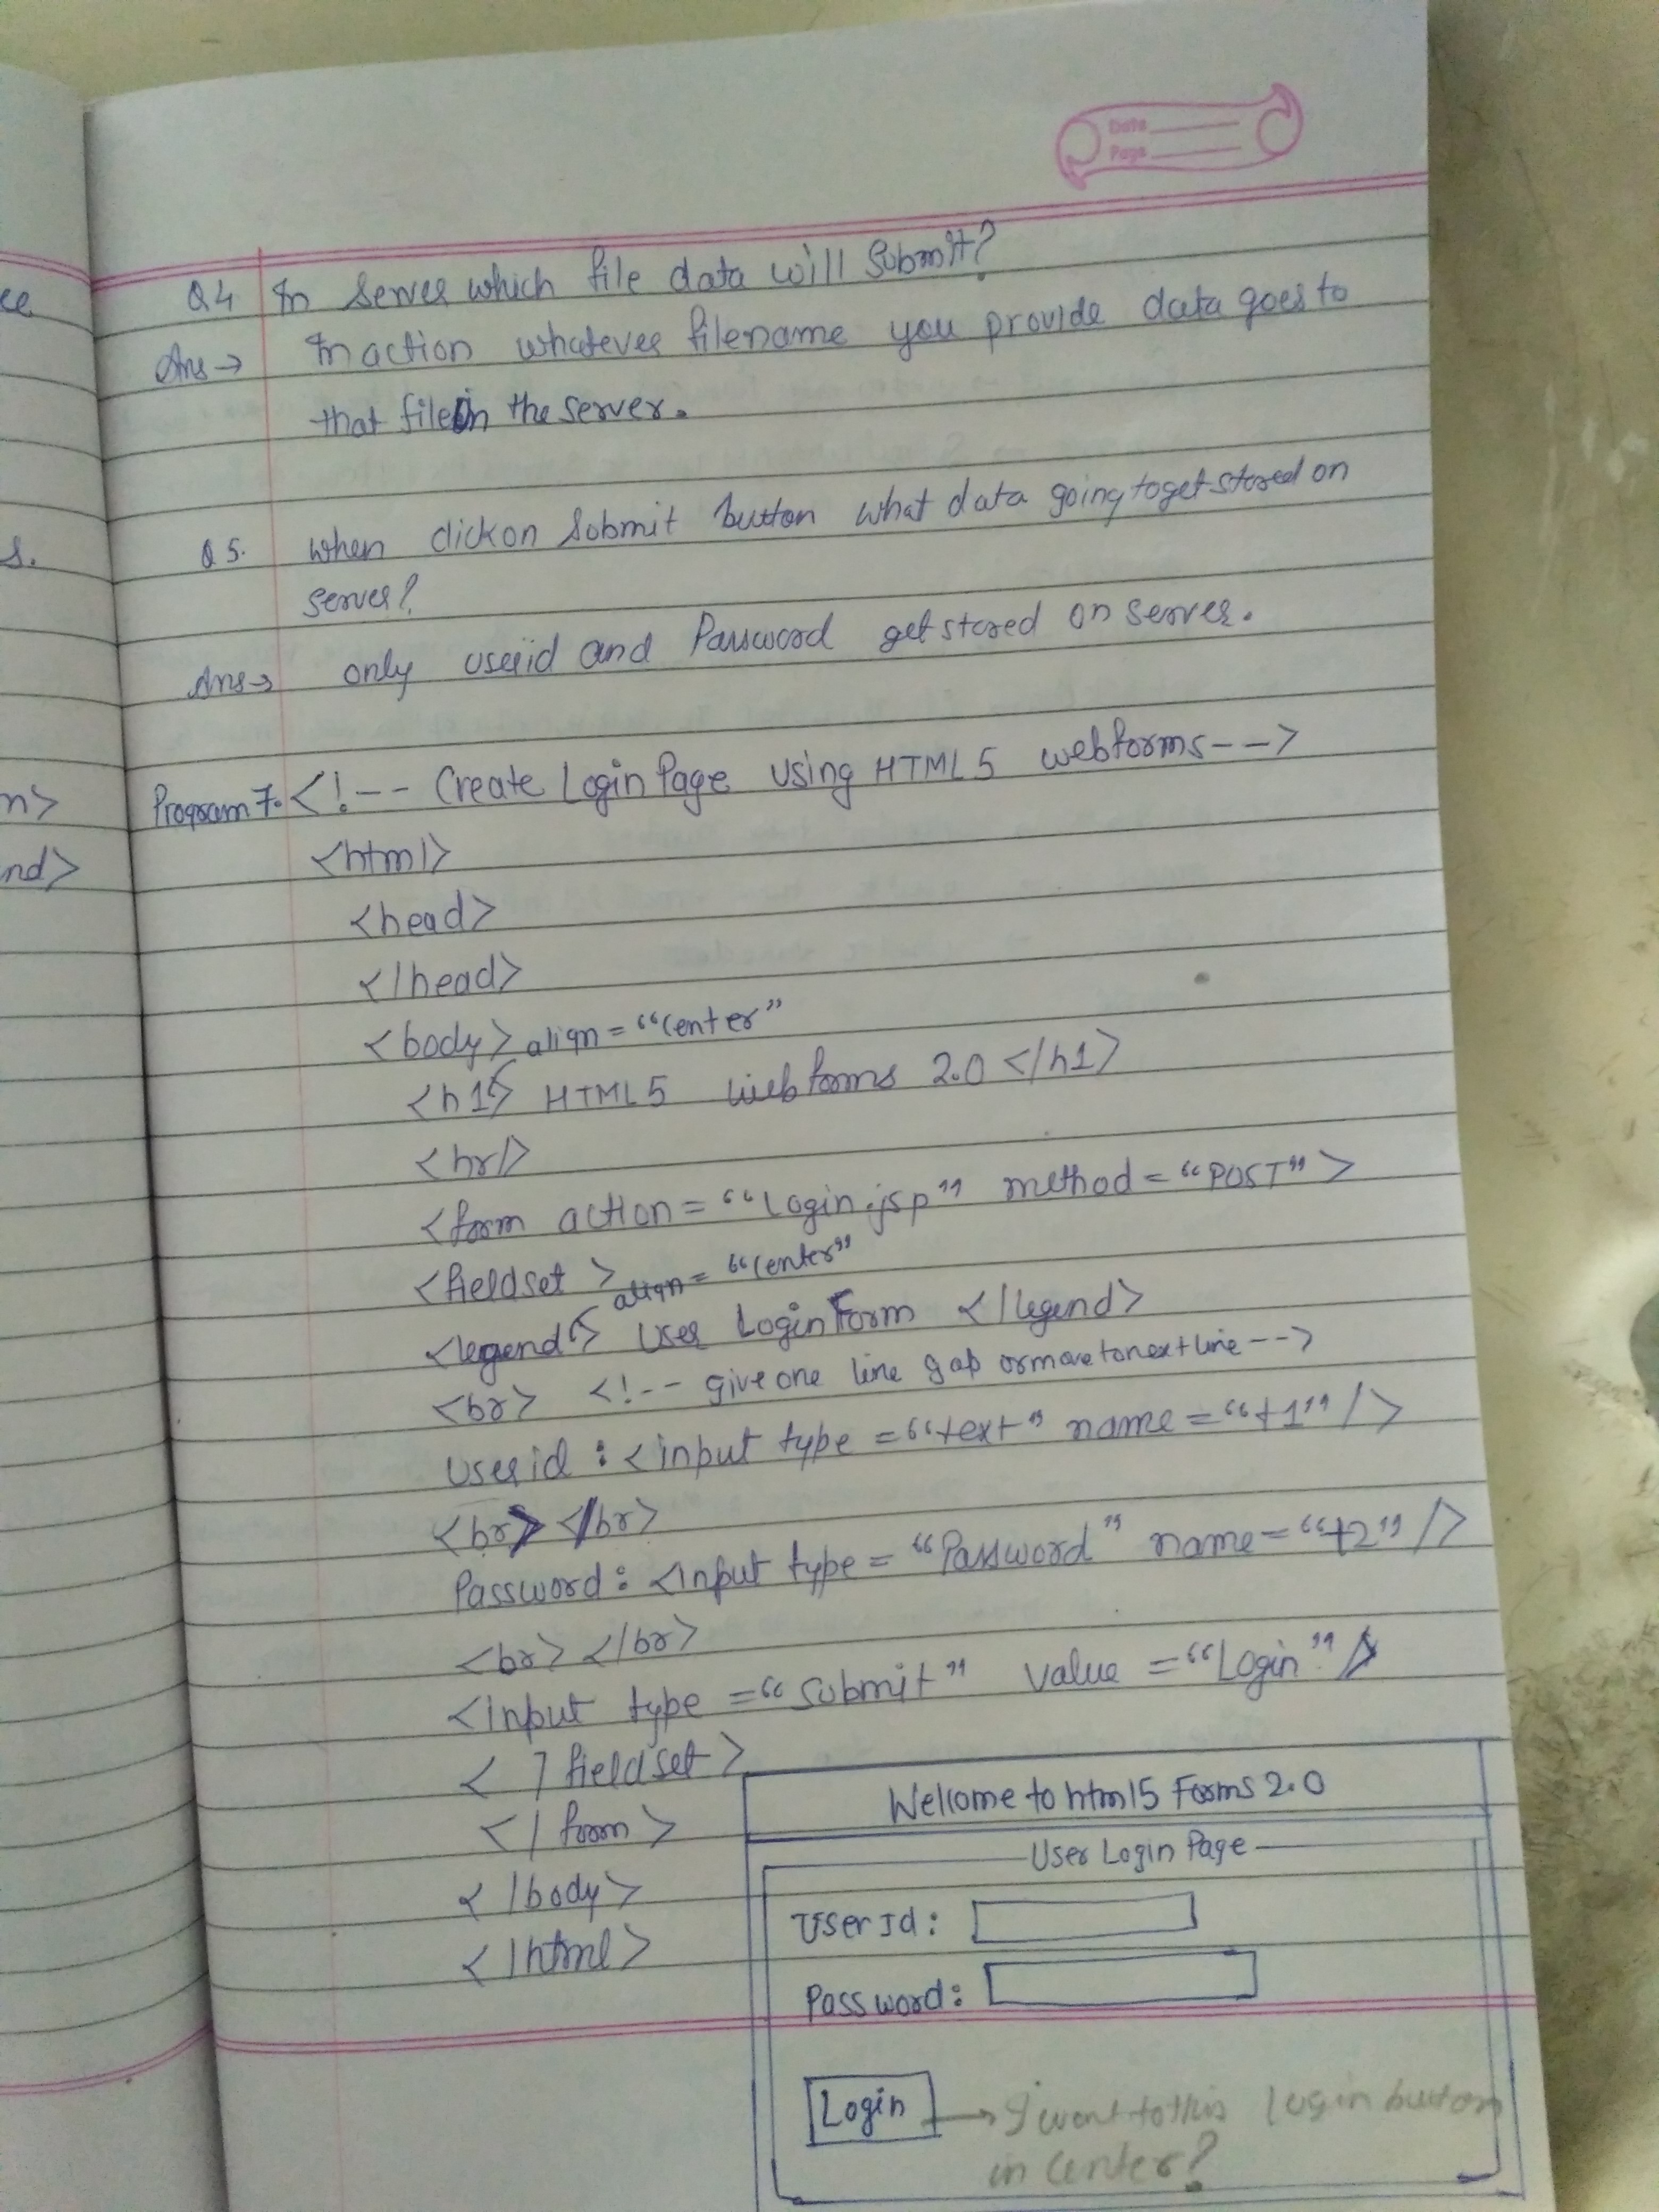 ce
s.
n>
nd>
Date
Page
Q4 In Server which file data will Submit?
Ans→ In action whatever filename you provide data goes to
that file in the server.
Q5. When click on Submit button what data going to get stored on
server?
Ans→ only userid and Password get stored on server.
Program 7. <!-- Create Login Page using HTML5 webforms-->
<html>
<head>
</head>
<body> align = "center"
<h1> HTML5 webforms 2.0 </h1>
<hr/>
<form action = "Login.jsp" method = "POST">
<fieldset > align = "center"
<legend> User Login Form </legend>
<br> <!-- give one line gap or move to next line -->
Userid : <input type = "text" name = "t1" />
<br> </br>
Password : <input type = "Password" name = "t2" />
<br> </br>
<input type = "submit" value = "Login" />
</fieldset>
</form>
</body>
</html>
Welcome to html5 Forms 2.0
User Login Page
User Id :
Password :
Login → I want to this login button
in center?